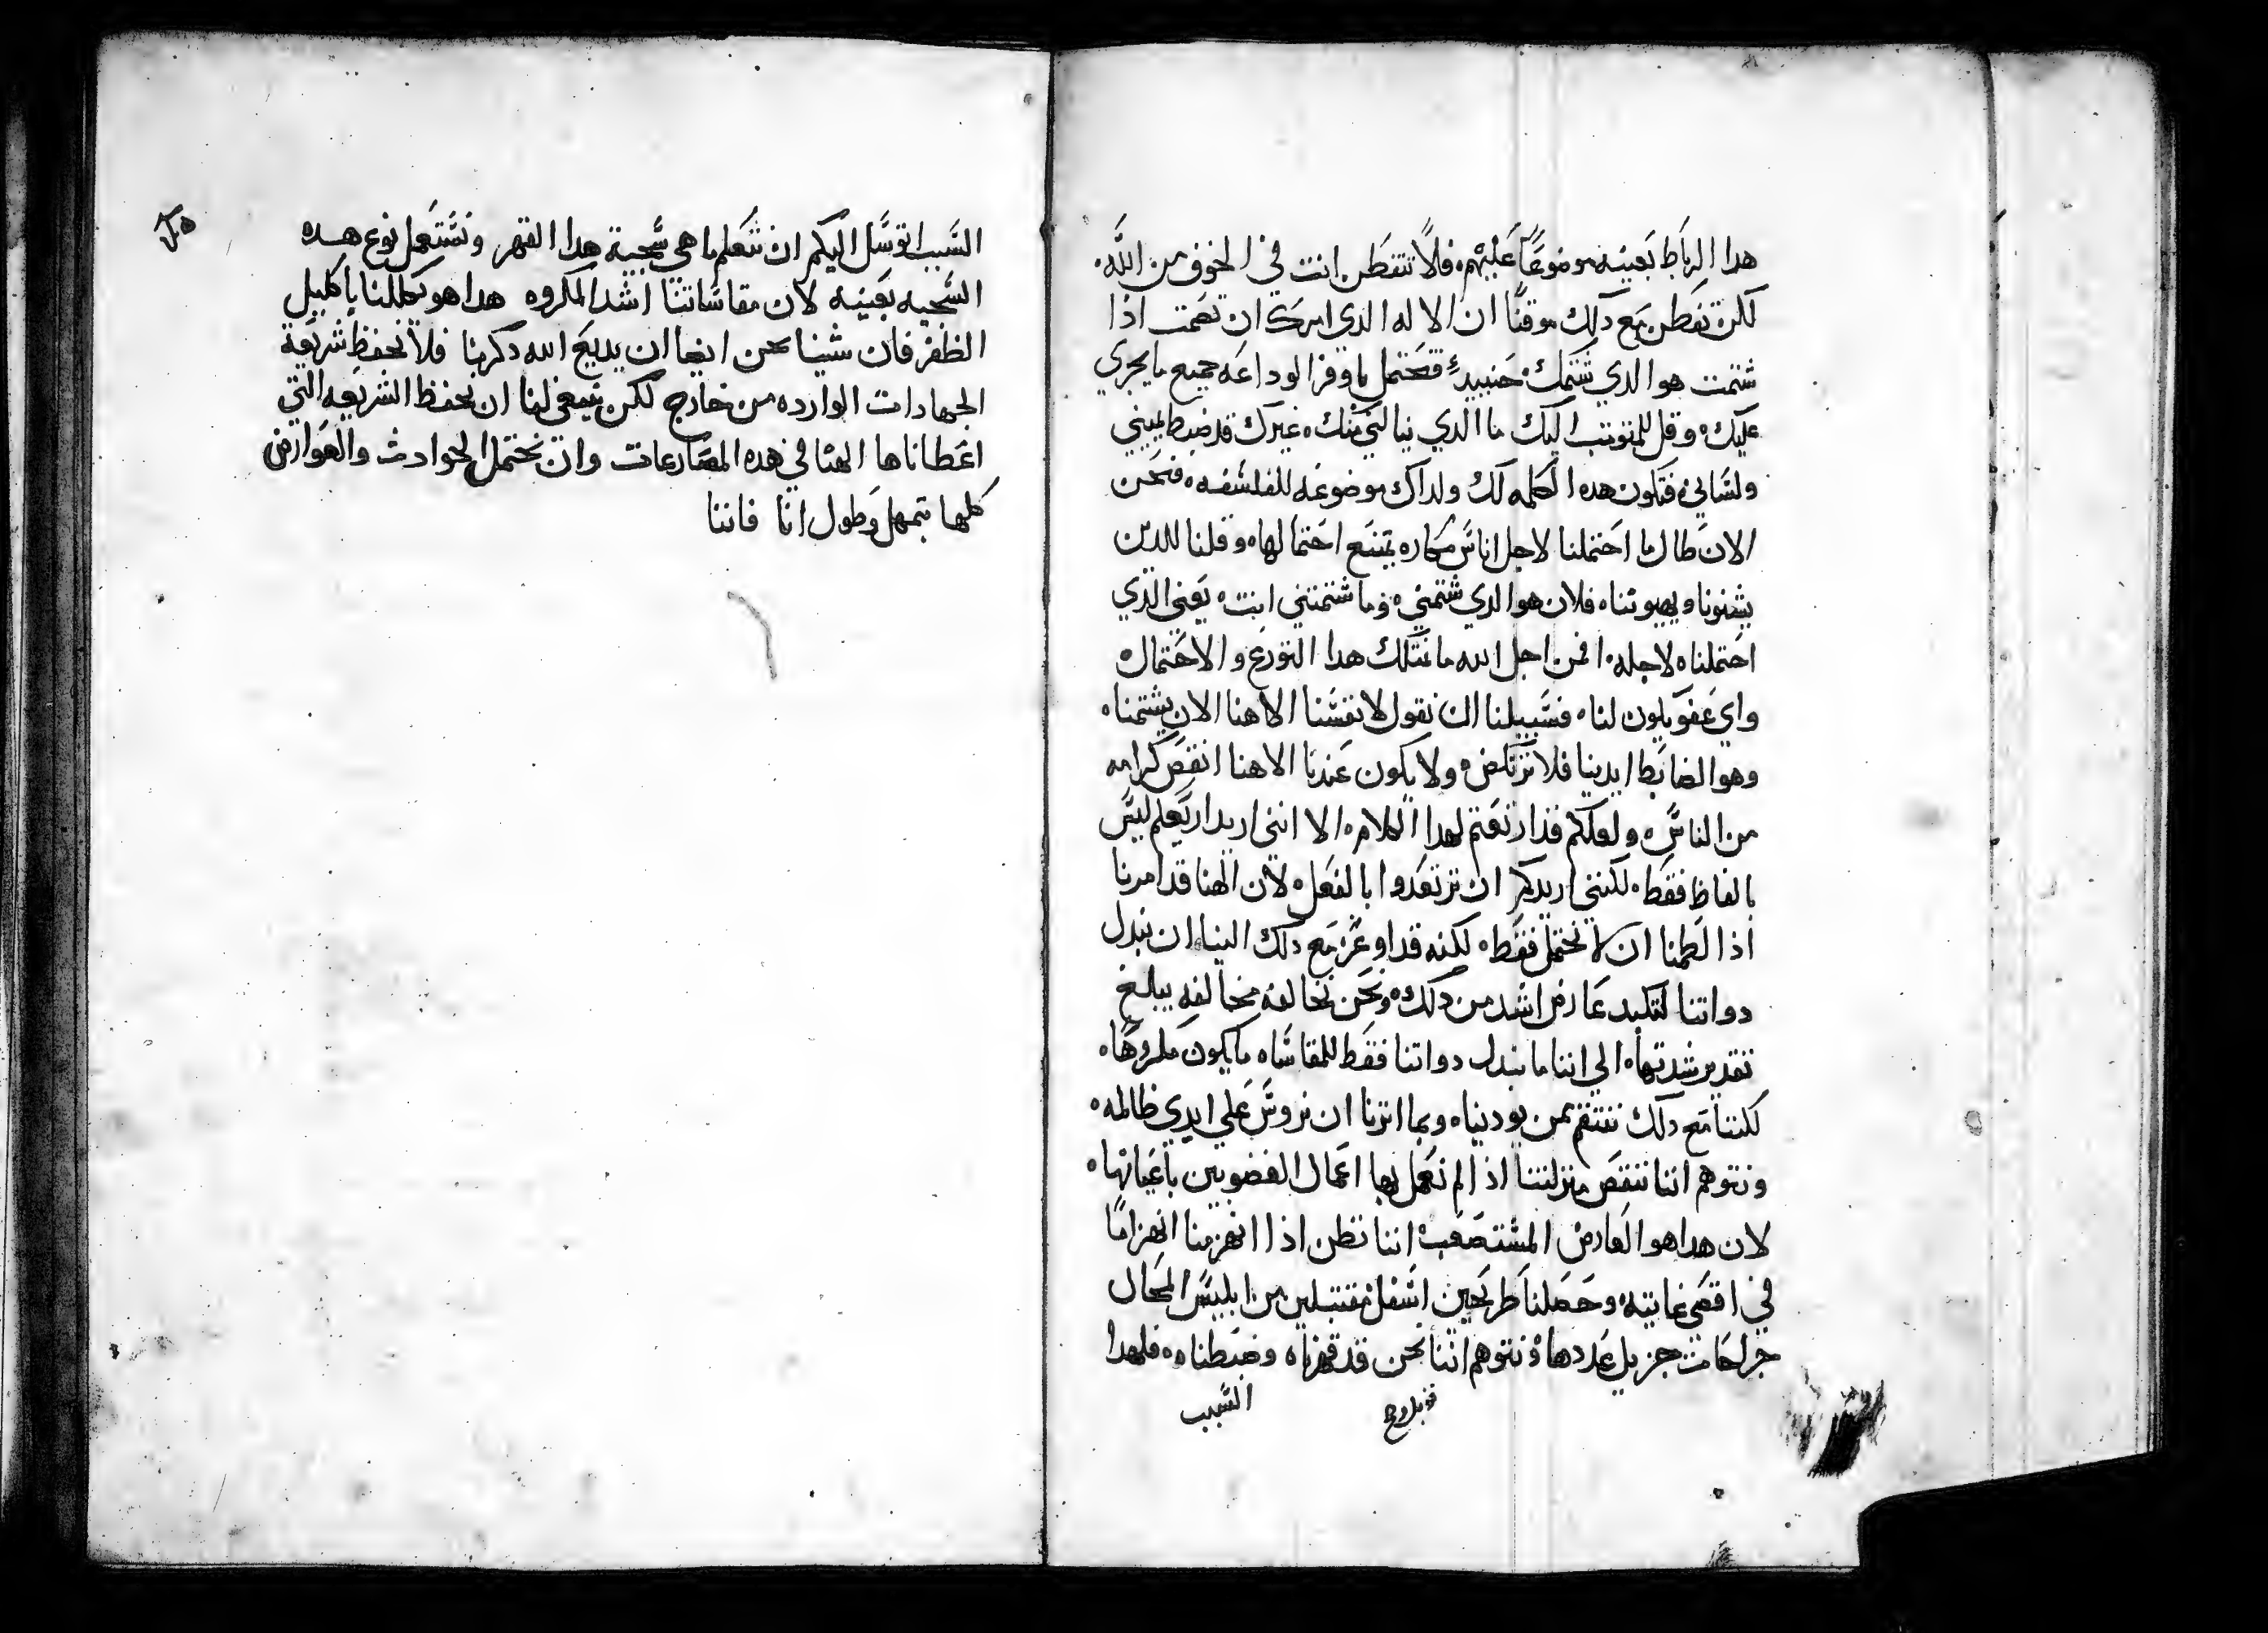 هدا الرباط بعينه موضوعًا عليهم فلا تتفطن انت في الخوف من الله
لكن تفطن مع دلك موقنًا ان الاله الدي امرك ان تصمت اذا
شتمت هو الدي شتمك حنييدٍ فتحتمل باوفر الوداعه جميع ما يجري
عليك وقل للمتوتب اليك ما الدي ينالني منك غيرك قد ضبط يميني
ولساني فتكون هده الكلمه لك ولداك موضوعه للفلسفه فنحن
الان طال ما احتملنا لاجل اناس مكاره يمتنع احتمالها وقلنا للدين
يشتمونا ويهيونناه فلان هو الدي شتمني وما شتمتني انت يعني الدي
احتملناه لاجله افمن اجل الله ما نمتلك هدا التورع والاحتمال
واي عفو يكون لنا فسبيلنا ان نقول لانفسنا الاهنا الان يشتمنا
وهو الضابط ايدينا فلا نرتكض ولا يكون عندنا الاهنا انقص كرامه
من الناس ولعلكم قد ارتعتم لهدا الكلام الا انني اريد ارتعلم ليس
بالفاظ فقط لكنني اريدكم ان ترتعدوا بالفعل لان الهنا قد امرنا
اذا لطمنا ان لا نحتمل فقط لكنه قد اوعز مع دلك الينا ان نبدل
دواتنا لتكبد عارض اشد من دلك ونحن نخالفه مخالفه يبلغ
تقدير شدتها الي اننا ما نبدل دواتنا فقط للمقاساه ما يكون مكروها
لكننا مع دلك ننتقم ممن يودينا وبما اترنا ان نروس علي ايدي ظالمه
ونتوهم اننا تنتقص منزلتنا اذ الم نعمل بها اعمال الغضوبين باعيانها
لان هدا هو العارض المستصعب اننا نظن اذا انهزمنا انهزامًا
في اقصي غايته وحصلنا طريحين اسفل مقتبلين من ابليس المحال
جراحات جزيل عددها ونتوهم اننا نحن قد قهرناه وضبطناه فلهدا
السبب
السبب اتوسل اليكم ان نتعلم ما هي سجية هدا القهر ونستعمل نوع هده
السجيه بعينه لان مقاساتنا اشد المكروه هدا هو يكللنا باكليل
الظفر فان شينا نحن ايضا ان يديع الله دكرنا فلا نحفظ شريعة
الجهادات الوارده من خارج لكن ينبغي لنا ان نحفظ الشريعه التي
اعطاناها الهنا في هده المصارعات وان نحتمل الحوادث والعوارض
كلها بتمهل وطول انا فاننا